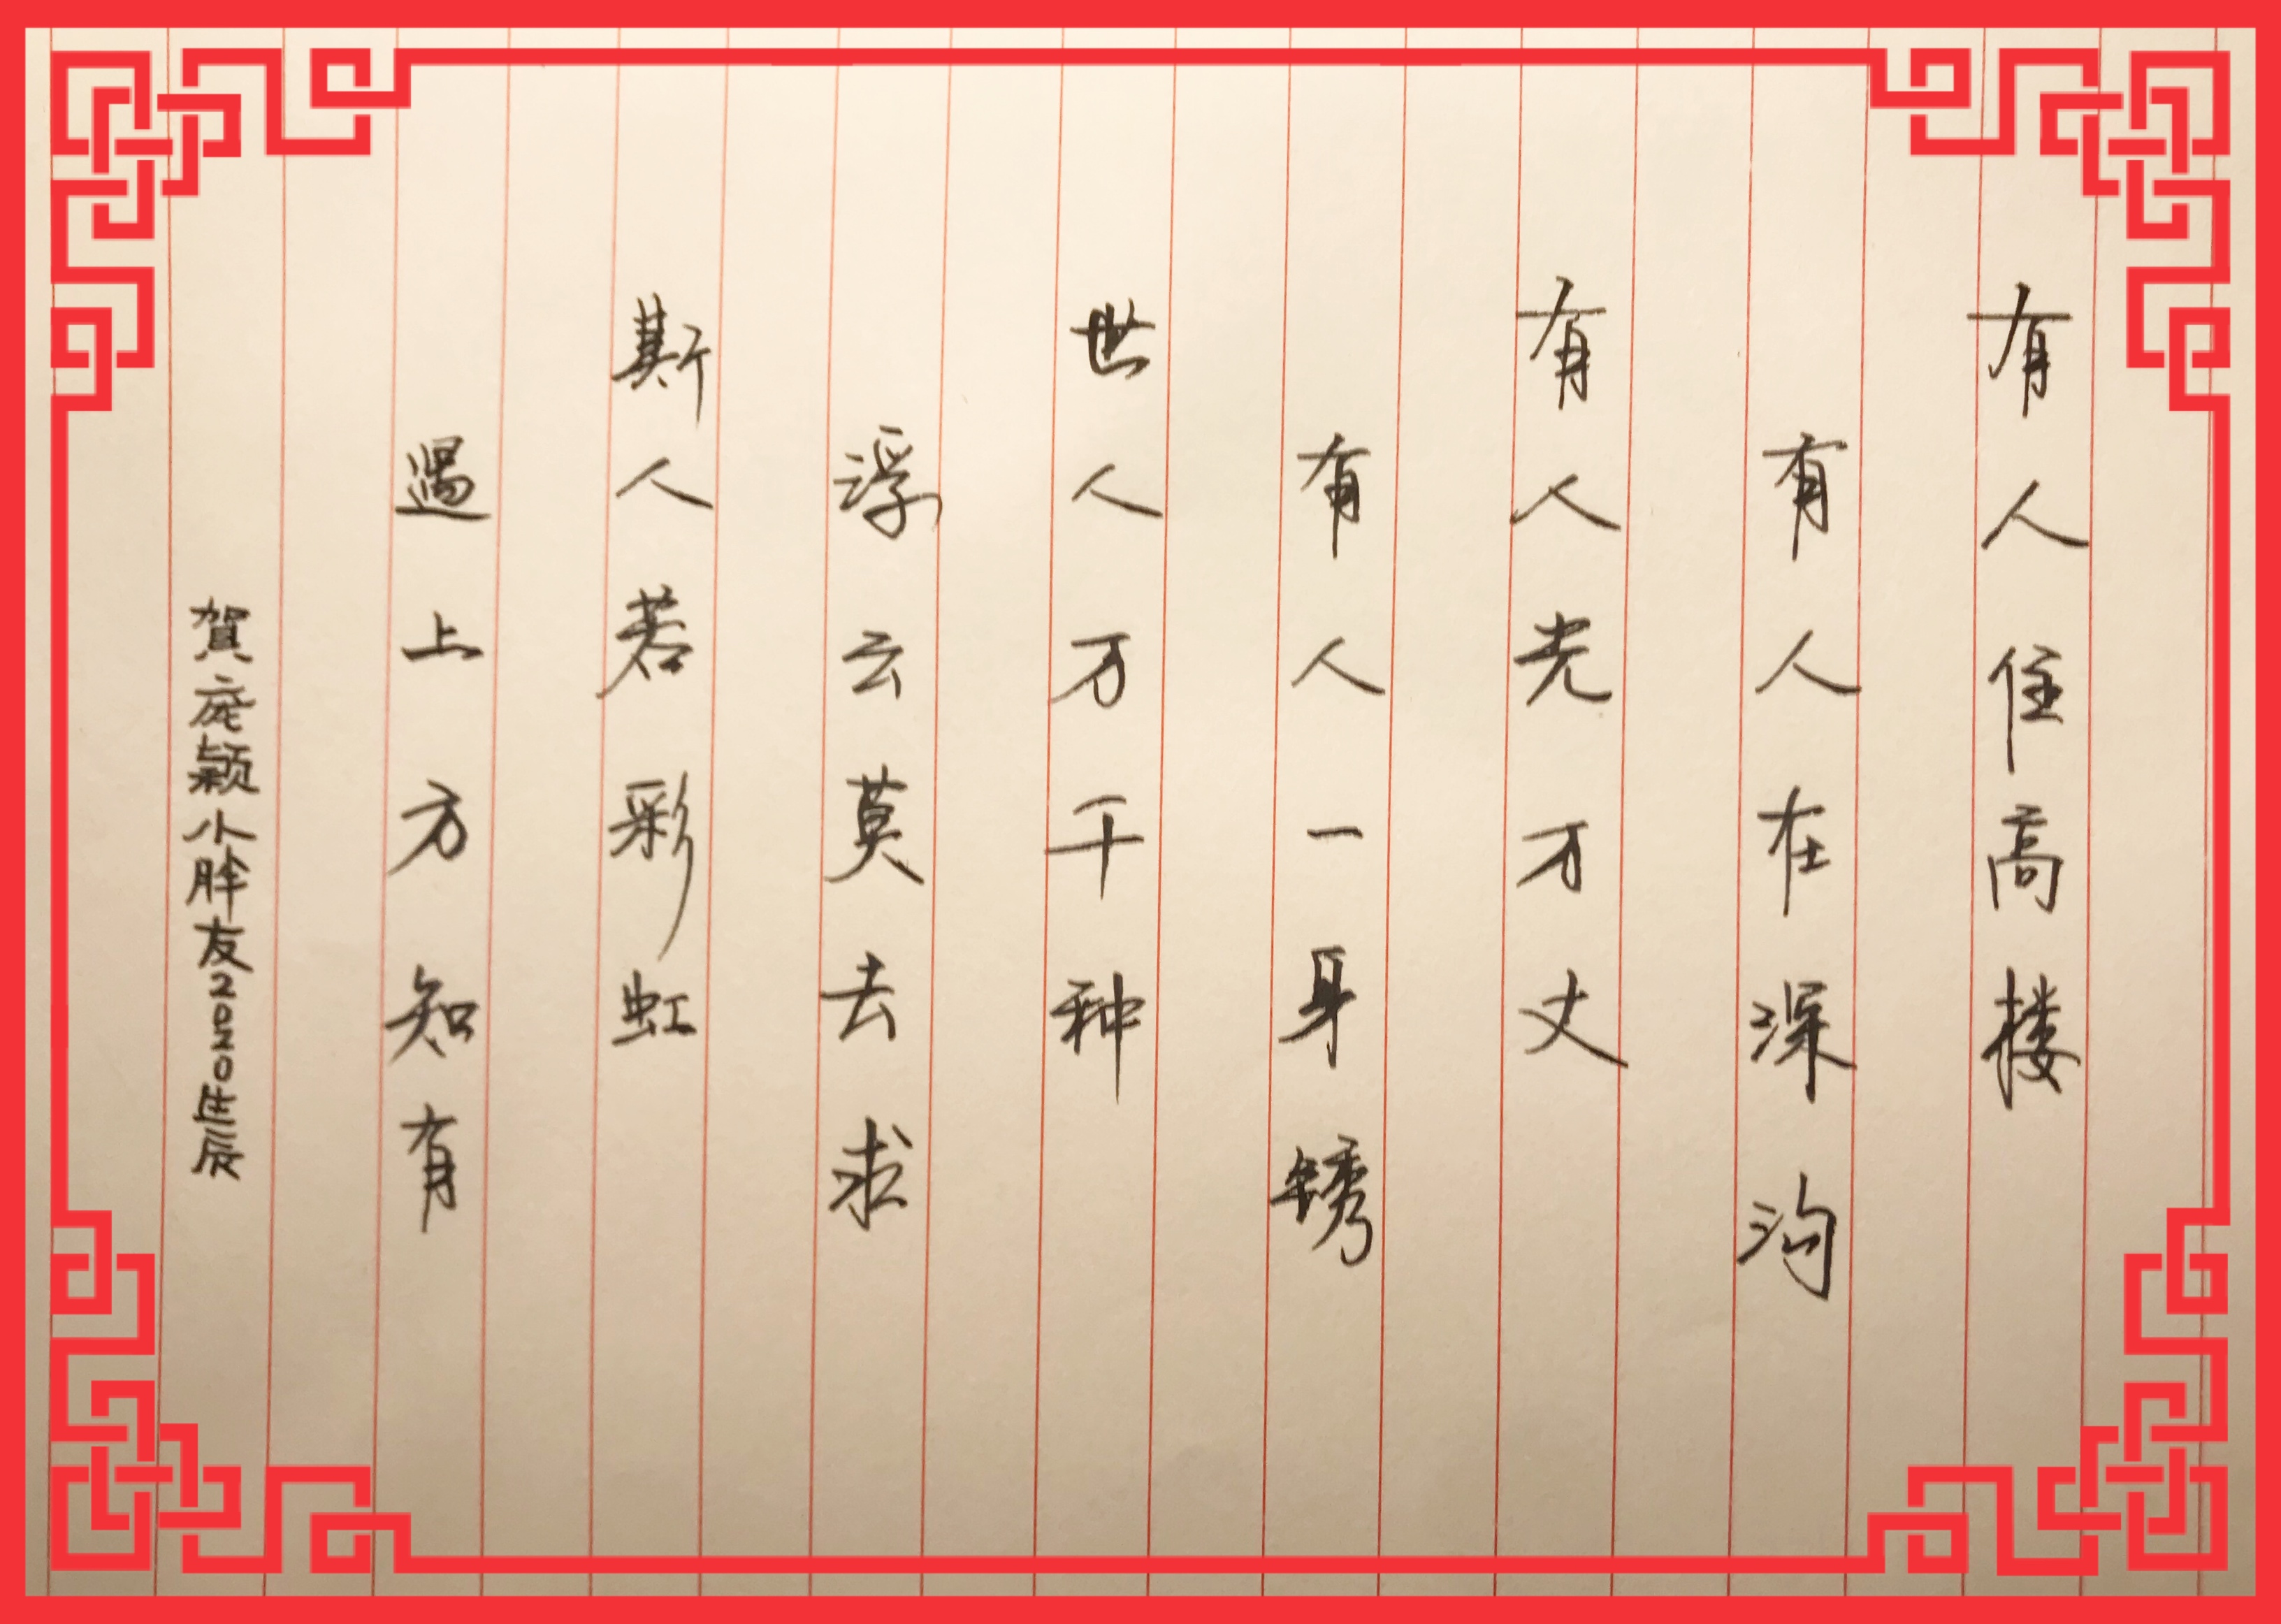 有人住高楼
有人在深沟
有人光万丈
有人一身锈
世人万千种
浮云莫去求
斯人若彩虹
遇上方知有
賀庞颖小胖友2020生辰